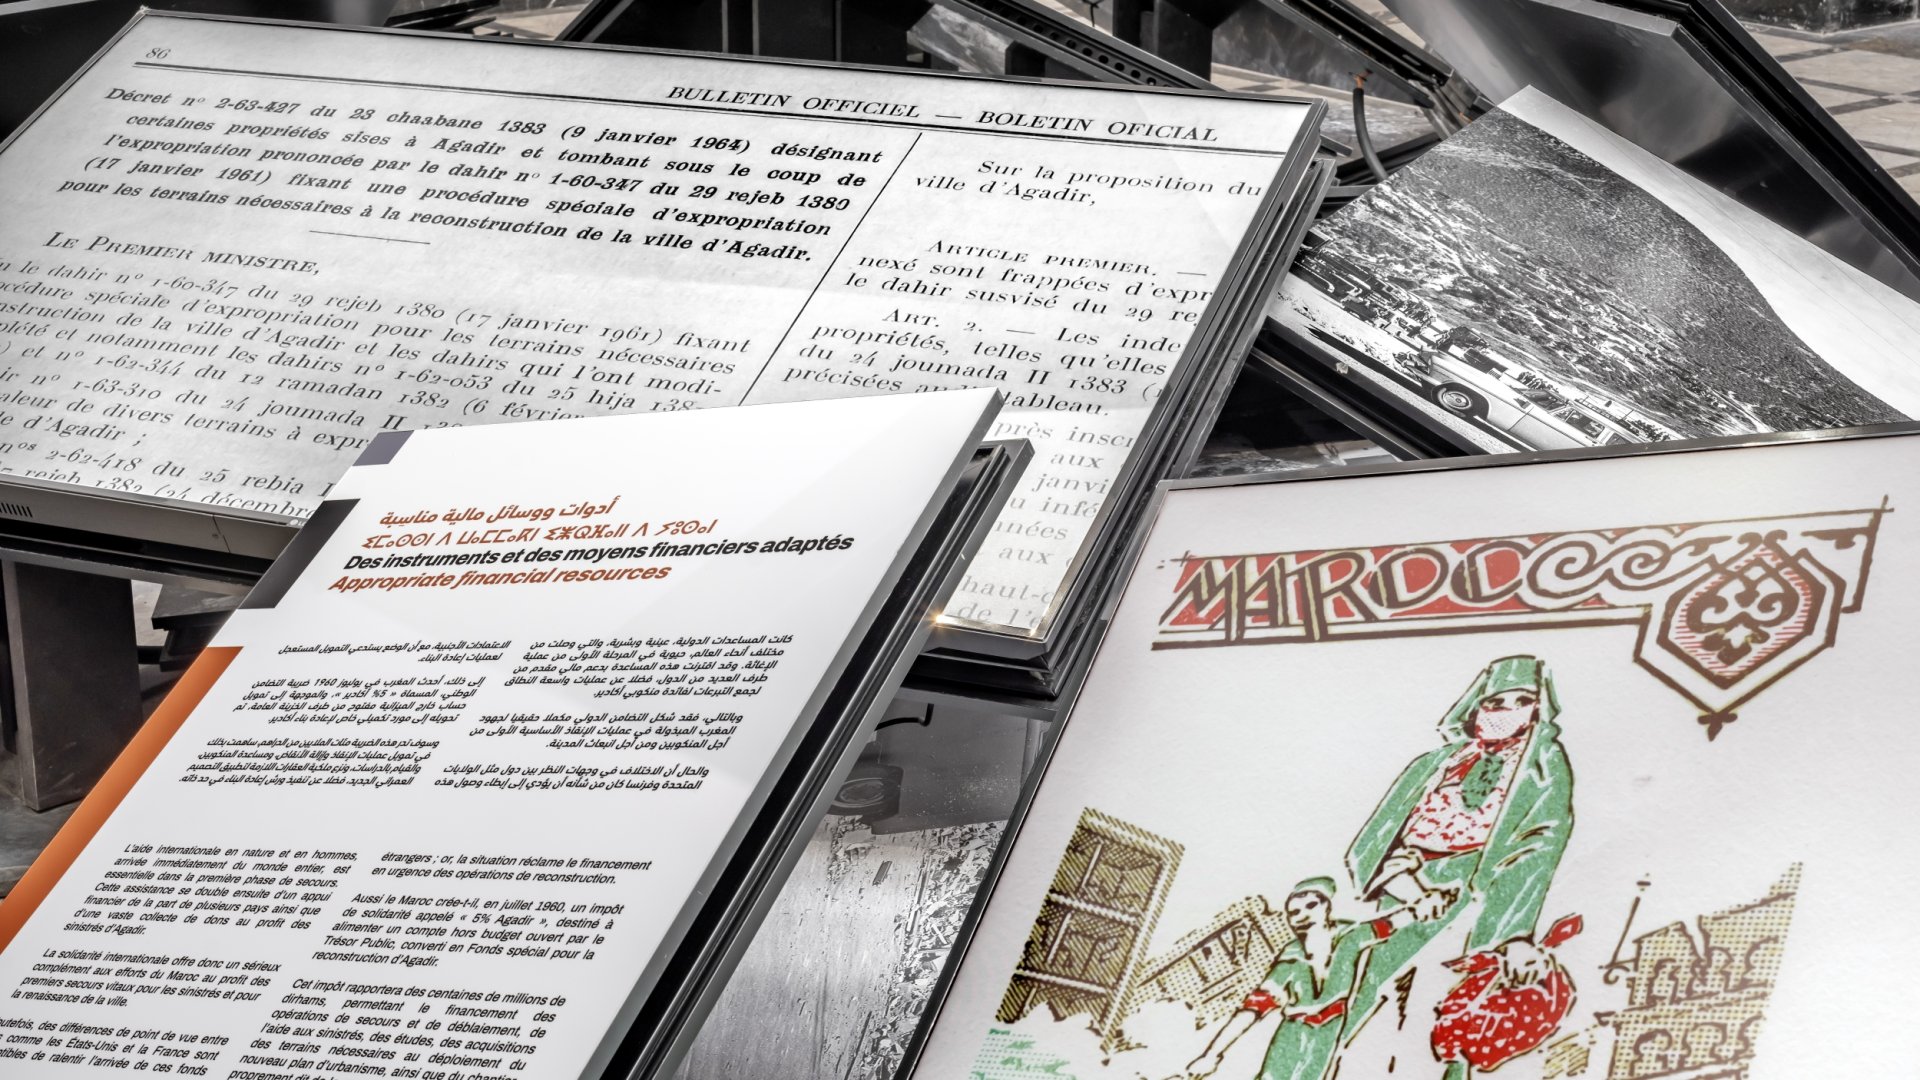 86
BULLETIN OFFICIEL — BOLETIN OFICIAL
Décret n° 2-63-427 du 23 chaabane 1383 (9 janvier 1964) désignant
certaines propriétés sises à Agadir et tombant sous le coup de
l'expropriation prononcée par le dahir n° 1-60-347 du 29 rejeb 1380
(17 janvier 1961) fixant une procédure spéciale d'expropriation
pour les terrains nécessaires à la reconstruction de la ville d'Agadir.
LE PREMIER MINISTRE,
le dahir n° 1-60-347 du 29 rejeb 1380 (17 janvier 1961) fixant
spéciale d'expropriation pour les terrains nécessaires
de la ville d'Agadir et les dahirs qui l'ont modi-
et notamment les dahirs n° 1-62-053 du 25 hija
et n° 1-62-344 du 12 ramadan 1382 (6
n° 1-63-310 du 24 joumada II
de divers terrains à
d'Agadir ;
2-62-418 du 25 rebia
Sur la proposition du
ville d'Agadir,
ARTICLE PREMIER. —
nexé sont frappées d'expr
le dahir susvisé du 29 re
ART. 2. — Les inde
propriétés, telles qu'elles
du 24 joumada II 1383 (1
précisées au
tableau.
près inscr
aux
janvi
aux
haut-c
أدوات ووسائل مالية مناسبة
ⵉⵎⴰⵙⵙⵏ ⴷ ⵡⴰⵎⵎⴰⴽⵏ ⵉⵥⵕⴼⴰⵏⵏ ⴷ ⵢⵓⵙⴰⵏ
Des instruments et des moyens financiers adaptés
Appropriate financial resources
كانت المساعدات الدولية، عينية وبشرية، والتي وصلت من
مختلف أنحاء العالم، حيوية في المرحلة الأولى من عملية
الإغاثة. وقد اقترنت هذه المساعدة بدعم مالي مقدم من
طرف العديد من الدول، فضلا عن عمليات واسعة النطاق
لجمع التبرعات لفائدة منكوبي أكادير.
وبالتالي، فقد شكل التضامن الدولي مكملا حقيقيا لجهود
المغرب المبذولة في عمليات الإنقاذ الأساسية الأولى من
أجل المنكوبين ومن أجل انبعاث المدينة.
والحال أن الاختلاف في وجهات النظر بين دول مثل الولايات
المتحدة وفرنسا كان من شأنه أن يؤدي إلى إبطاء وصول هذه
الاعتمادات الأجنبية، مع أن الوضع يستدعي التمويل المستعجل
لعمليات إعادة البناء.
إلى ذلك، أحدث المغرب في يوليوز 1960 ضريبة التضامن
الوطني، المسماة « 5% أكادير »، والموجهة إلى تمويل
حساب خارج الميزانية مفتوح من طرف الخزينة العامة، تم
تحويله إلى مورد تكميلي خاص لإعادة بناء أكادير.
وسوف تدر هذه الضريبة مئات الملايين من الدراهم، ساهمت بذلك
في تمويل عمليات الإنقاذ وإزالة الأنقاض، ومساعدة المنكوبين،
والقيام بالدراسات، ونزع ملكية العقارات اللازمة لتطبيق التصميم
العمراني الجديد، فضلا عن تنفيذ ورش إعادة البناء في حد ذاته.
L'aide internationale en nature et en hommes,
arrivée immédiatement du monde entier, est
essentielle dans la première phase de secours.
Cette assistance se double ensuite d'un appui
financier de la part de plusieurs pays ainsi que
d'une vaste collecte de dons au profit des
sinistrés d'Agadir.
La solidarité internationale offre donc un sérieux
complément aux efforts du Maroc au profit des
premiers secours vitaux pour les sinistrés et pour
la renaissance de la ville.
des différences de point de vue entre
comme les États-Unis et la France sont
de ralentir l'arrivée de ces fonds
étrangers ; or, la situation réclame le financement
en urgence des opérations de reconstruction.
Aussi le Maroc crée-t-il, en juillet 1960, un impôt
de solidarité appelé « 5% Agadir », destiné à
alimenter un compte hors budget ouvert par le
Trésor Public, converti en Fonds spécial pour la
reconstruction d'Agadir.
Cet impôt rapportera des centaines de millions de
dirhams, permettant le financement des
opérations de secours et de déblaiement, de
l'aide aux sinistrés, des études, des acquisitions
des terrains nécessaires au déploiement du
nouveau plan d'urbanisme, ainsi que du chantier
proprement dit de
MAROC